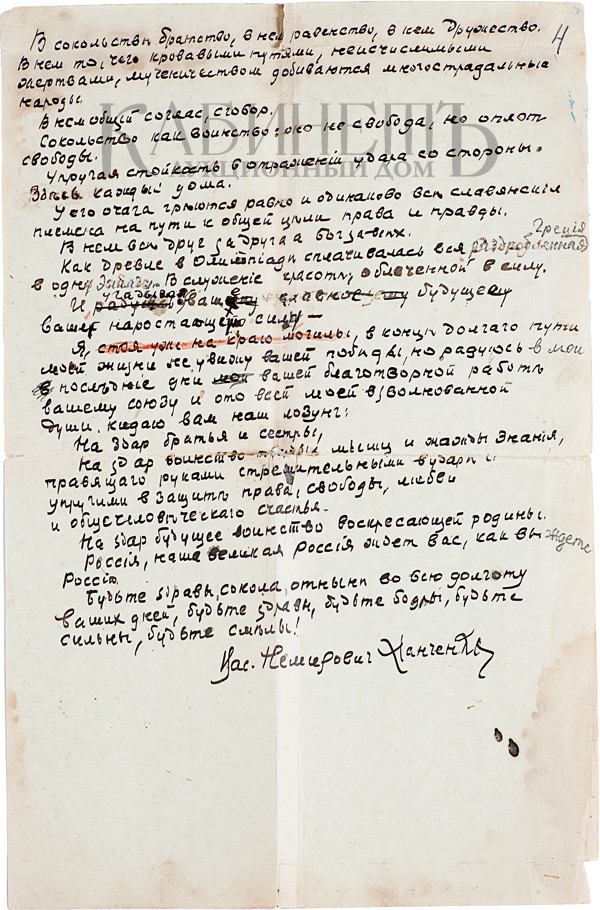 4
В сокольствѣ братство, в нем равенство, в нем дружество.
В нем то, чего кровавыми путями, неисчислимыми
жертвами, мученичеством добиваются многострадальные
народы.
В нем общій соглас, сговор.
Сокольство как воинство: око не свобода, но оплот
свободы.
Упругая стойкость в отраженіи удара со стороны.
Здѣсь каждый дома.
У его очага грѣются равно и одинаково всѣ славянскія
племена на пути к общей цѣли права и правды.
В нем всѣ друг за друга а Бог за всѣх.
Как древле в Олимпіади сплачивалась вся раздробленная Греція
в одну Элладу. В служеніе красотѣ, облеченной в силу.
И угадывая вашему будущему
вашей наростающей силы —
Я, стоя уже на краю могилы, в концѣ долгаго пути
моей жизни не увижу вашей побѣды, но радуюсь в мои
послѣдніе дни вашей благотворной работѣ
вашему союзу и ото всей моей взволнованной
души кидаю вам наш лозунг:
На здар братья и сестры,
На здар воинство мышц и жажды знанія,
правящаго руками стремительными в ударѣ и
упругими в защитѣ права, свободы, любви
и общечеловѣческаго счастья.
На здар будущее воинство воскресающей родины.
Россія, наша великая Россія ждет вас, как вы ждете
Россію.
Будьте здравы, сокола, отнынѣ во всю долготу
ваших дней, будьте здравы, будьте бодры, будьте
сильны, будьте смѣлы!
Вас. Немирович Данченко
КАБИНЕТЪ
АУКЦИОННЫЙ ДОМ